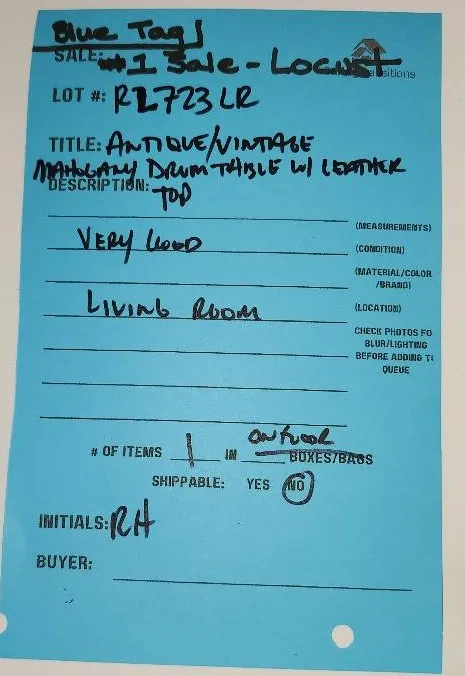 Blue Tag
SALE: #1 Sale - Locust
LOT #: R2723LR
TITLE: ANTIQUE/VINTAGE
MAHOGANY DRUM TABLE W/ LEATHER
DESCRIPTION: TOP
(MEASUREMENTS)
VERY GOOD (CONDITION)
(MATERIAL/COLOR
/BRAND)
LIVING ROOM (LOCATION)
CHECK PHOTOS FO
BLUR/LIGHTING
BEFORE ADDING T
QUEUE
# OF ITEMS 1 IN ON FLOOR BOXES/BAGS
SHIPPABLE: YES NO
INITIALS: RH
BUYER: